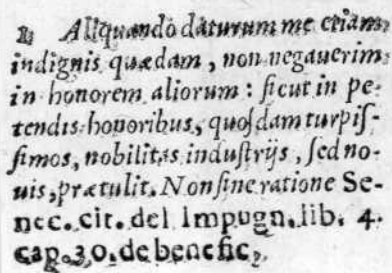 1. Aliquando daturum me etiam
indignis quædam, non negauerim
in honorem aliorum: ſicut in pe-
tendis honoribus, quoſdam turpiſ-
ſimos, nobilitas induſtrijs, ſed no-
uis, prætulit. Non ſine ratione Se-
nec. cit. del Impugn. lib. 4.
cap. 30. de benefic,